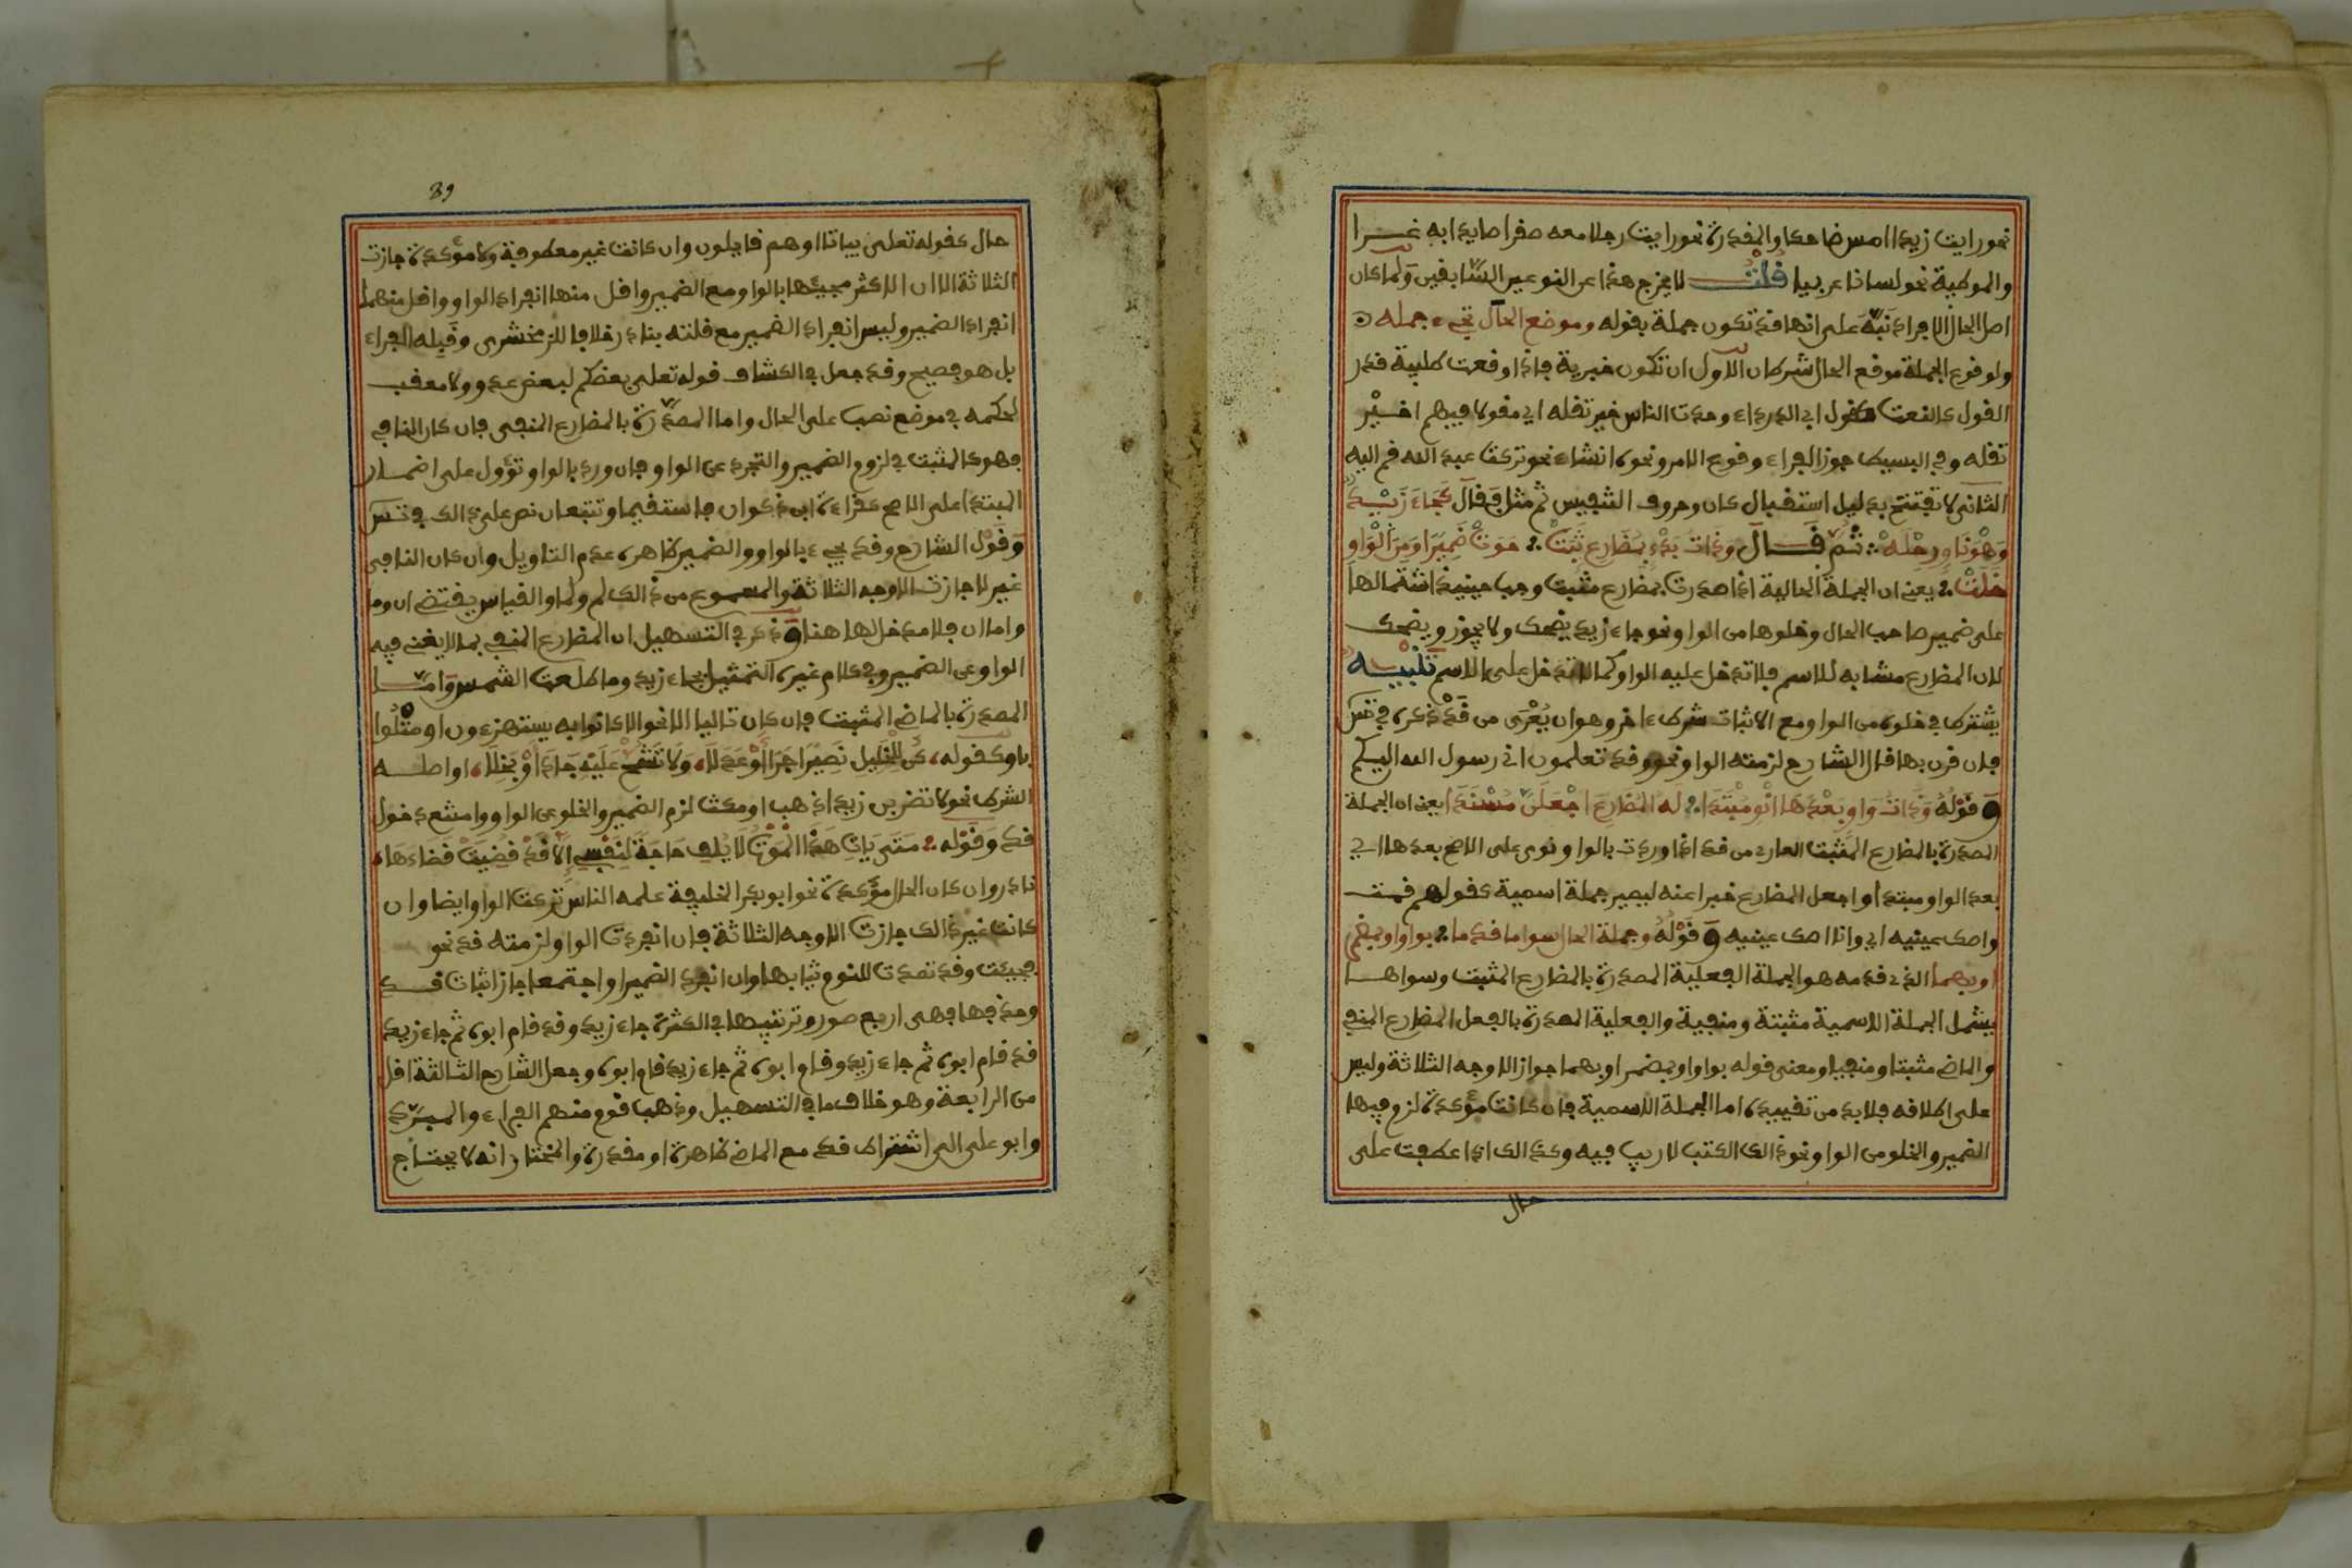 نحو رايت زيدا امس ضاحكا والمقدرة نحو رايت رجلا معه صقرا صايدا به غدا
والموطية نحو لسانا عربيا قلت لا يخرج هذا عن النوعين السابقين ولما كان
اصل الحال الافراد نبه على انها قد تكون جملة بقوله وموضع الحال تجيء جمله
ولوقوع الجملة موقع الحال شرطان الاول ان تكون خبرية فاذا وقعت طلبية قدر
القول كالنعت كقول ابي الدرداء وجدت الناس خبر تقله اي مقولا فيهم اخبر
تقله وفي البسيط جوز الفراء وقوع الامر ونحوه انشاء نحو تركت عبد الله قم اليه
الثاني لا تفتتح بدليل استقبال كان وحروف التنفيس ثم مثل فقال كجاء زيد
وهو ناو رحله ثم قال وذات بدء بمضارع ثبت حوت ضميرا ومن الواو
خلت يعني ان الجملة الحالية اذا صدرت بمضارع مثبت وجب حينيذ اشتمالها
على ضمير صاحب الحال وخلوها من الواو نحو جاء زيد يضحك ولا يجوز ويضحك
لان المضارع مشابه للاسم فلا تدخل عليه الواو كما لا تدخل على الاسم تنبيه
يشترط في خلوه من الواو مع الاثبات شرط ءاخر وهو ان يعرى من قد ذكره في تس
فان قرن بها قال الشارح لزمته الواو نحو وقد تعلمون اني رسول الله اليكم
وقوله وذات واو بعدها انو مبتدا له المضارع اجعلن مسندا يعني ان الجملة
المصدرة بالمضارع المثبت العاري من قد اذا وردت بالواو نوي على الاصح بعدها اي
بعد الواو مبتدا واجعل المضارع خبرا عنه ليصير جملة اسمية كقولهم قمت
واصك عينيه اي وانا اصك عينيه وقوله وجملة الحال سوا ما قدما بواو او بمضمر
او بهما الذي قدمه هو الجملة الفعلية المصدرة بالمضارع المثبت وسواها
يشمل الجملة الاسمية مثبتة ومنفية والفعلية المصدرة بالفعل المضارع المنفي
والماضي مثبتا ومنفيا ومعنى قوله بواو او بمضمر او بهما جواز الاوجه الثلاثة وليس
على اطلاقه فلا بد من تقييده اما الجملة الاسمية فان كانت مؤكدة لزم فيها
الضمير والخلو من الواو نحو ذالك الكتب لا ريب فيه وكذالك اذا عطفت على
حال
89
حال كقوله تعلى بياتا او هم قايلون وان كانت غير معطوفة ولا مؤكدة جازت
الثلاثة الا ان الاكثر مجيئها بالواو مع الضمير واقل منها انفراد الواو واقل منهما
انفراد الضمير وليس انفراد الضمير مع قلته بنادر خلافا للزمخشري وقبله الفراء
بل هو فصيح وقد جعل في الكشاف قوله تعلى بعضكم لبعض عدو ولا معقب
لحكمه في موضع نصب على الحال واما المصدرة بالمضارع المنفي فان كان النافي
فهو كالمثبت في لزوم الضمير والتجرد عن الواو فان ورد بالواو تؤول على اضمار
المبتدا على الاصح كقراءة ابن ذكوان فاستقيما ولا تتبعان نص على ذالك في تس
وقول الشارح وقد يجيء بالواو والضمير ظاهره عدم التاويل وان كان النافي
غير لا جازت الاوجه الثلاثة والمسموع من ذالك لم ولما والقياس يقتضي ان وما
واما ان فلا مدخل لها هنا وذكر في التسهيل ان المضارع المنفي بما لا يغني فيه
الواو عن الضمير وفي كلام غيره التمثيل بجاء زيد وما طلعت الشمس واما
المصدرة بالماضي المثبت فان كان تاليا الا نحو الا كانوا به يستهزءون او متلوا
باو كقوله كن للخليل نصيرا جار او عدلا ولا تشح عليه جاد او بخلا او اصله
الشرط نحو لاضربن زيدا ذهب او مكث لزم الضمير والخلو عن الواو وامتنع دخول
قد وقوله متى يات هذا الموت لا يلف حاجة لنفسي الا قد قضيت قضاءها
نادر وان كان الحال مؤكدة نحو ابو بكر الخليفة علمه الناس تركت الواو ايضا وان
كانت غير ذالك جازت الاوجه الثلاثة فان انفردت الواو لزمته قد نحو
فجيئت وقد نضت لنوم ثيابها وان انفرد الضمير او اجتمعا جاز اثبات قد
وحذفها فهي اربع صور وترتيبها في الكثرة جاء زيد وقد قام ابوه ثم جاء زيد
قد قام ابوه ثم جاء زيد وقام ابوه ثم جاء زيد قام ابوه وجعل الشارح الثالثة اقل
من الرابعة وهو خلاف ما في التسهيل وذهب قوم منهم الفراء والمبرد
وابو علي الى اشتراط قد مع الماضي ظاهرة او مقدرة والمختار انه لا يحتاج